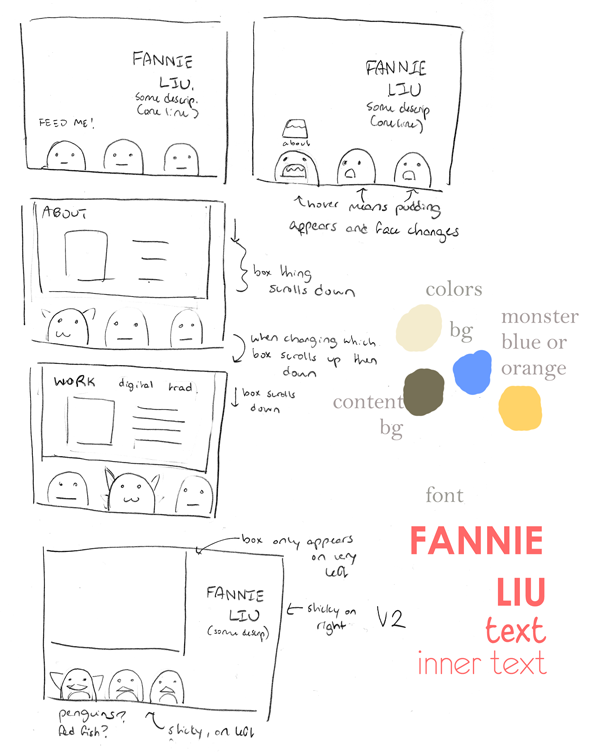 FANNIE
LIU.
some descrip.
(one line)
FEED ME!
FANNIE
LIU
some descrip
(one line)
about
hover means pudding
appears and face changes
ABOUT
box thing
scrolls down
when changing which
box scrolls up then
down
WORK digital trad.
box scrolls
down
colors
bg
monster
blue or
orange
content
bg
font
FANNIE
LIU
text
inner text
box only appears
on very
left
FANNIE
LIU
(some descrip)
sticky on
right
V2
penguins?
fed fish?
sticky, on left